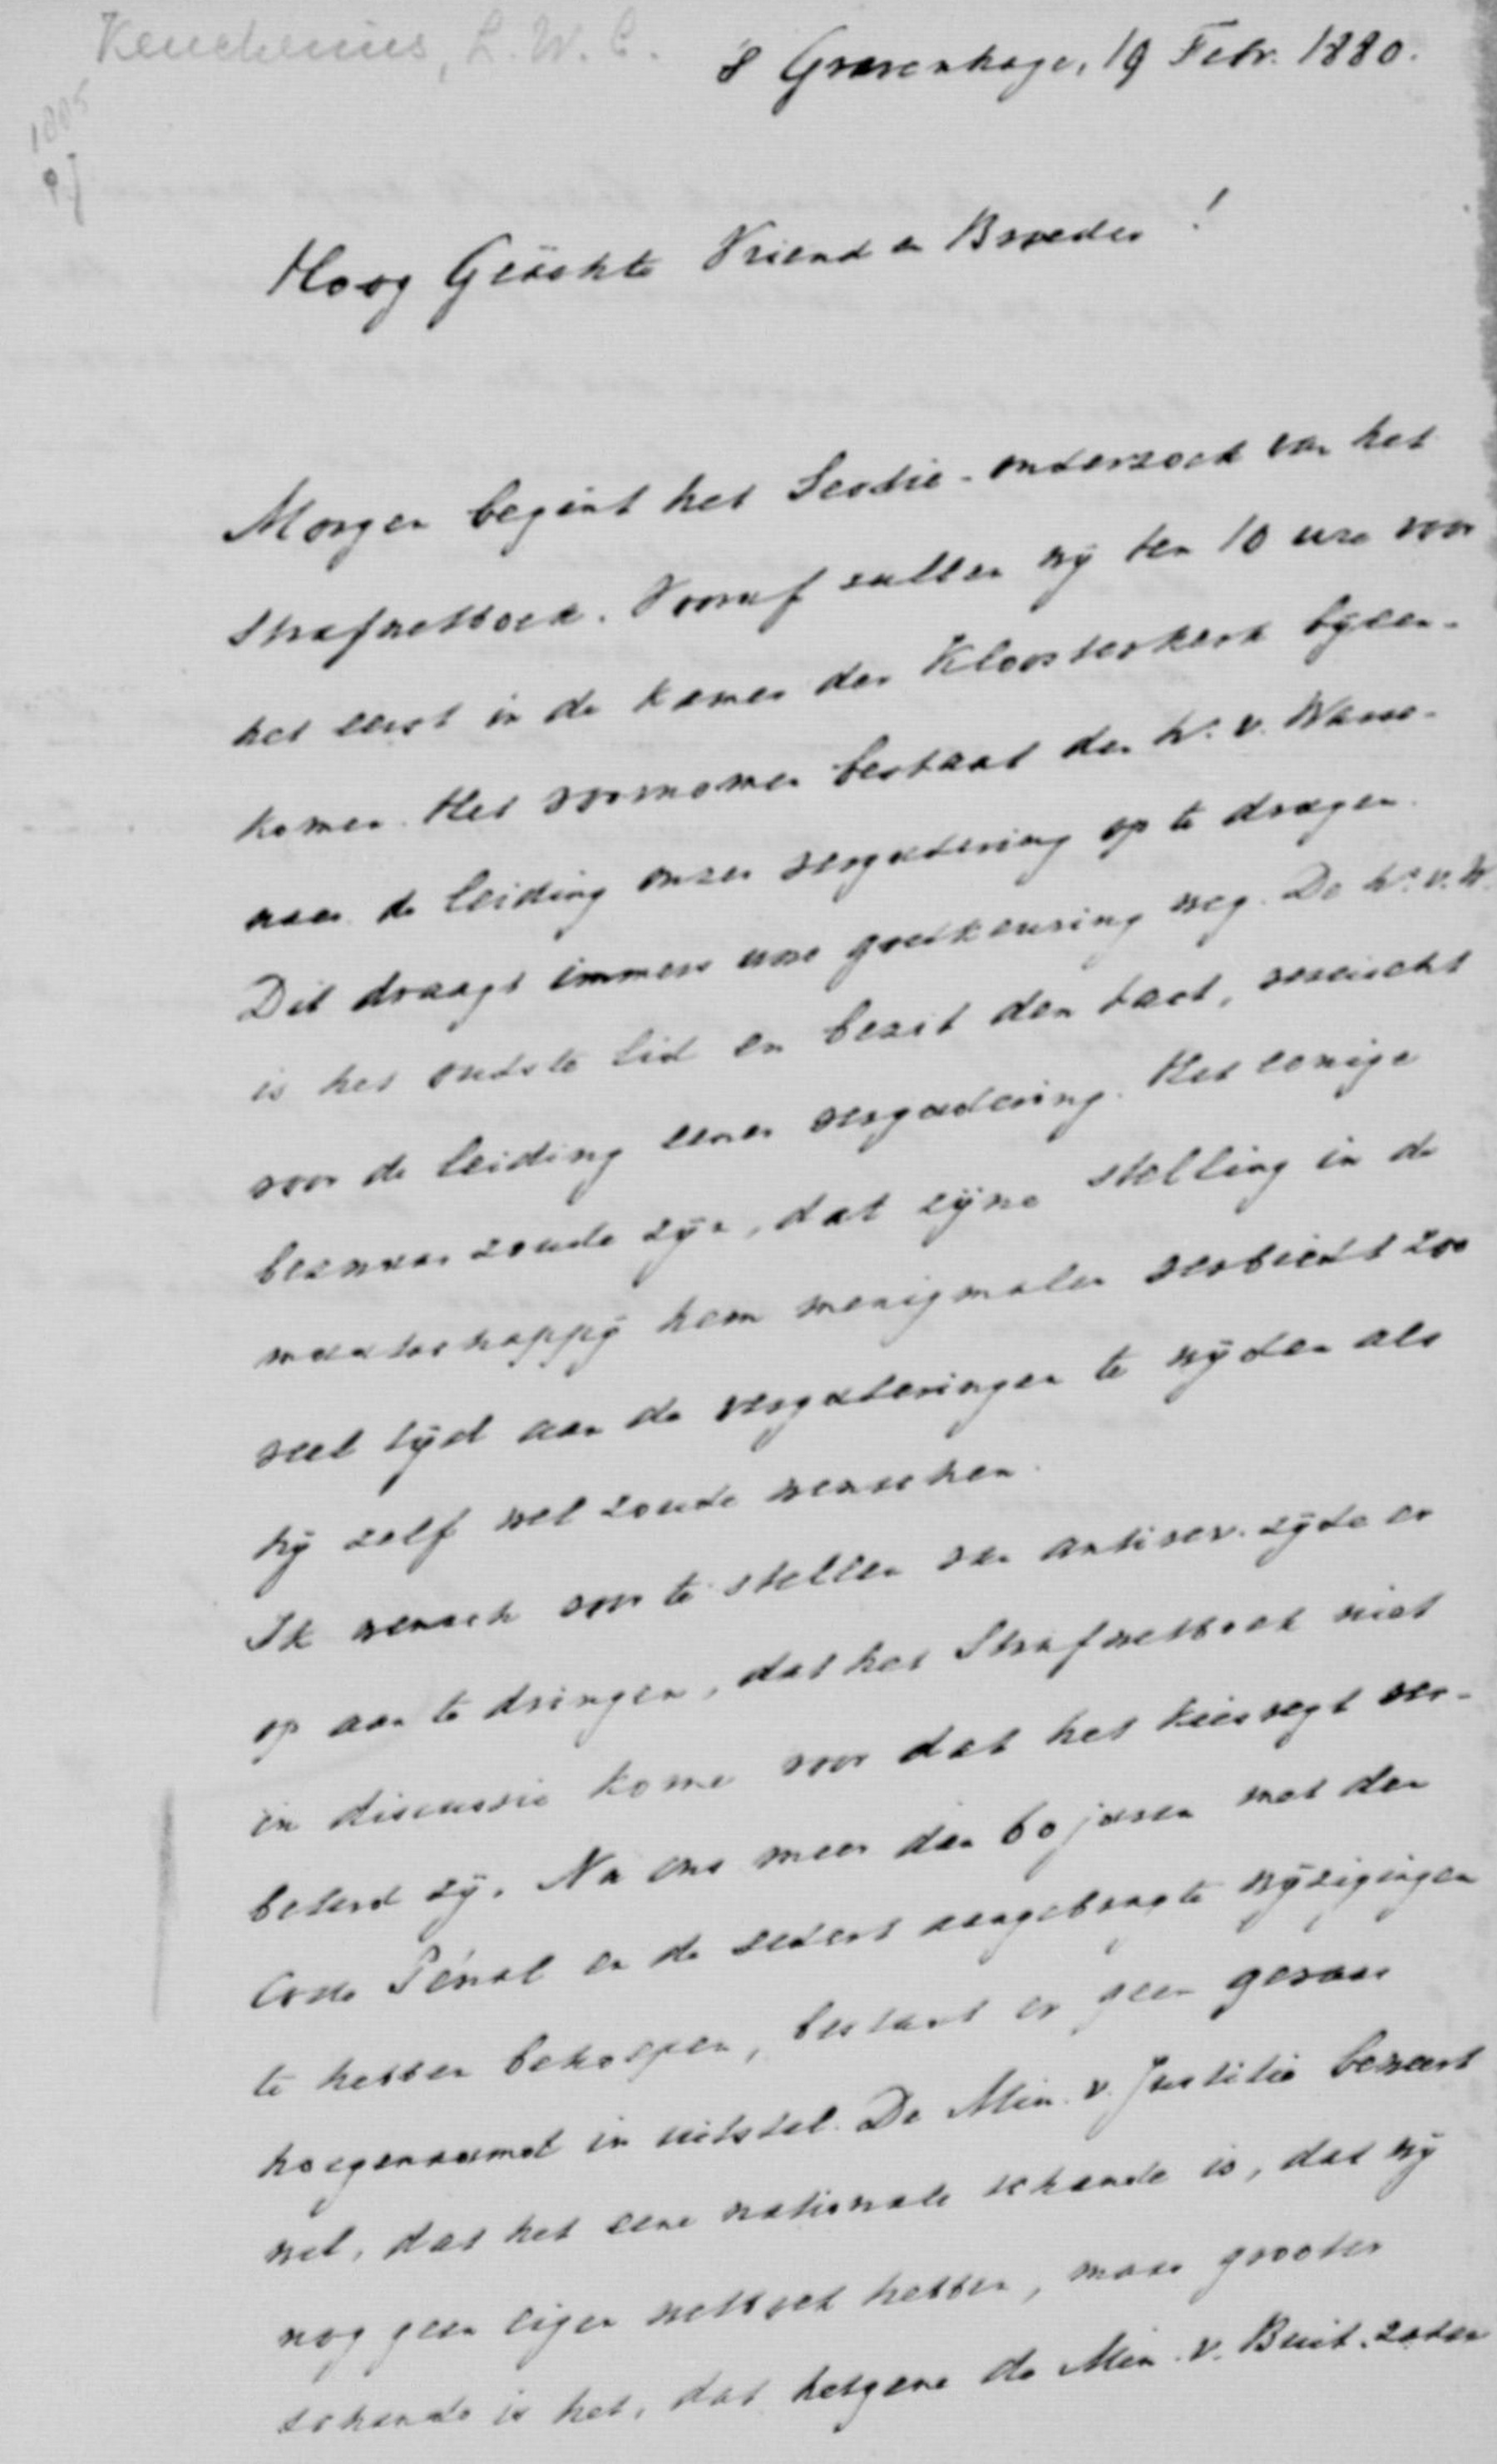 Keuchenius, L. W. C.
's Gravenhage, 19 Febr. 1880.
Hoog Geachte Vriend en Broeder!
Morgen begint het Sectie-onderzoek van het
Strafwetboek. Vooraf zullen wij ten 10 ure voor
het eerst in de kamer der Kloosterkerk byeen-
komen. Het voornemen bestaat den hr. v. Wasse-
naer de leiding onzer vergadering op te dragen.
Dit draagt immers uwe goedkeuring weg. De hr. v. W.
is het oudste lid en bezit den tact, vereischt
voor de leiding eener vergadering. Het eenige
bezwaar zoude zijn, dat zijne stelling in de
maatschappij hem menigmalen verbiedt zoo
veel tijd aan de vergaderingen te wijden als
hij zelf wel zoude wenschen.
Ik wensch voor te stellen van antirev. zijde er
op aan te dringen, dat het Strafwetboek niet
in discussie kome voor dat het kiesregt ver-
beterd zij. Na ons meer dan 60 jaren met den
Code Pénal en de sedert aangebragte wijzigingen
te hebben beholpen, bestaat er geen gevaar
hoegenaamd in uitstel. De Min. v. Justitie beweert
wel, dat het eene nationale schande is, dat wij
nog geen eigen wetboek hebben, maar grooter
schande is het, dat hetgene de Min. v. Buit. zaken